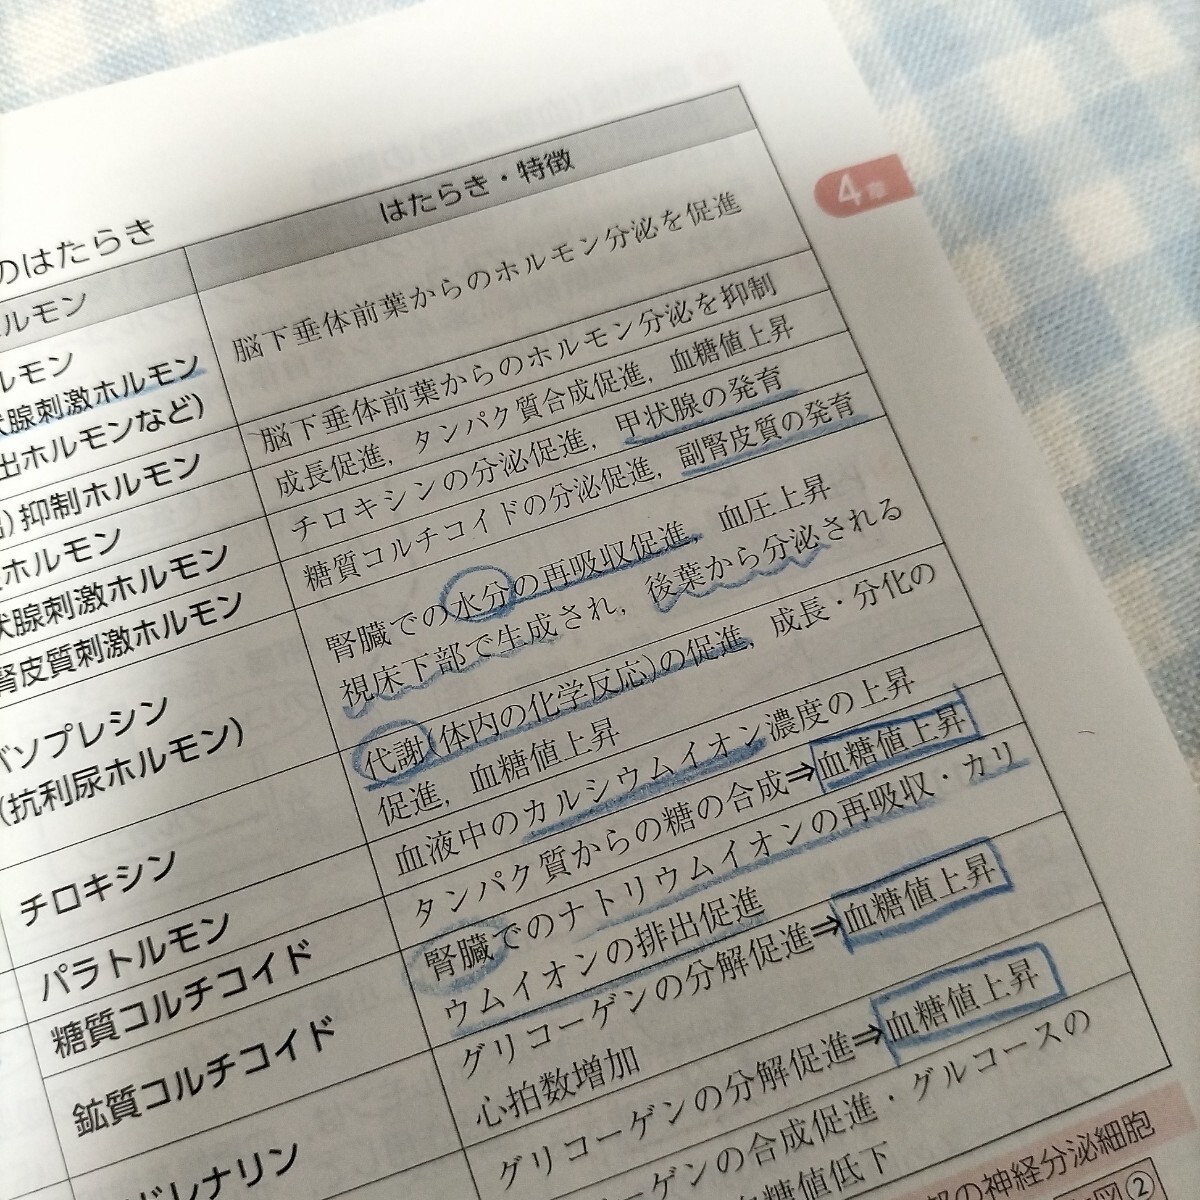 のはたらき
4章
ルモン
はたらき・特徴
ルモン
状腺刺激ホルモン
出ホルモンなど)
脳下垂体前葉からのホルモン分泌を促進
抑制ホルモン
脳下垂体前葉からのホルモン分泌を抑制
ホルモン
成長促進，タンパク質合成促進，血糖値上昇
状腺刺激ホルモン
チロキシンの分泌促進，甲状腺の発育
腎皮質刺激ホルモン
糖質コルチコイドの分泌促進，副腎皮質の発育
バソプレシン
(抗利尿ホルモン)
腎臓での水分の再吸収促進，血圧上昇
視床下部で生成され，後葉から分泌される
チロキシン
代謝(体内の化学反応)の促進，成長・分化の
促進，血糖値上昇
パラトルモン
血液中のカルシウムイオン濃度の上昇
糖質コルチコイド
タンパク質からの糖の合成⇒血糖値上昇
鉱質コルチコイド
腎臓でのナトリウムイオンの再吸収・カリ
ウムイオンの排出促進
ドレナリン
グリコーゲンの分解促進⇒血糖値上昇
心拍数増加
グリコーゲンの分解促進⇒血糖値上昇
ーゲンの合成促進・グルコースの
糖値低下
の神経分泌細胞
②